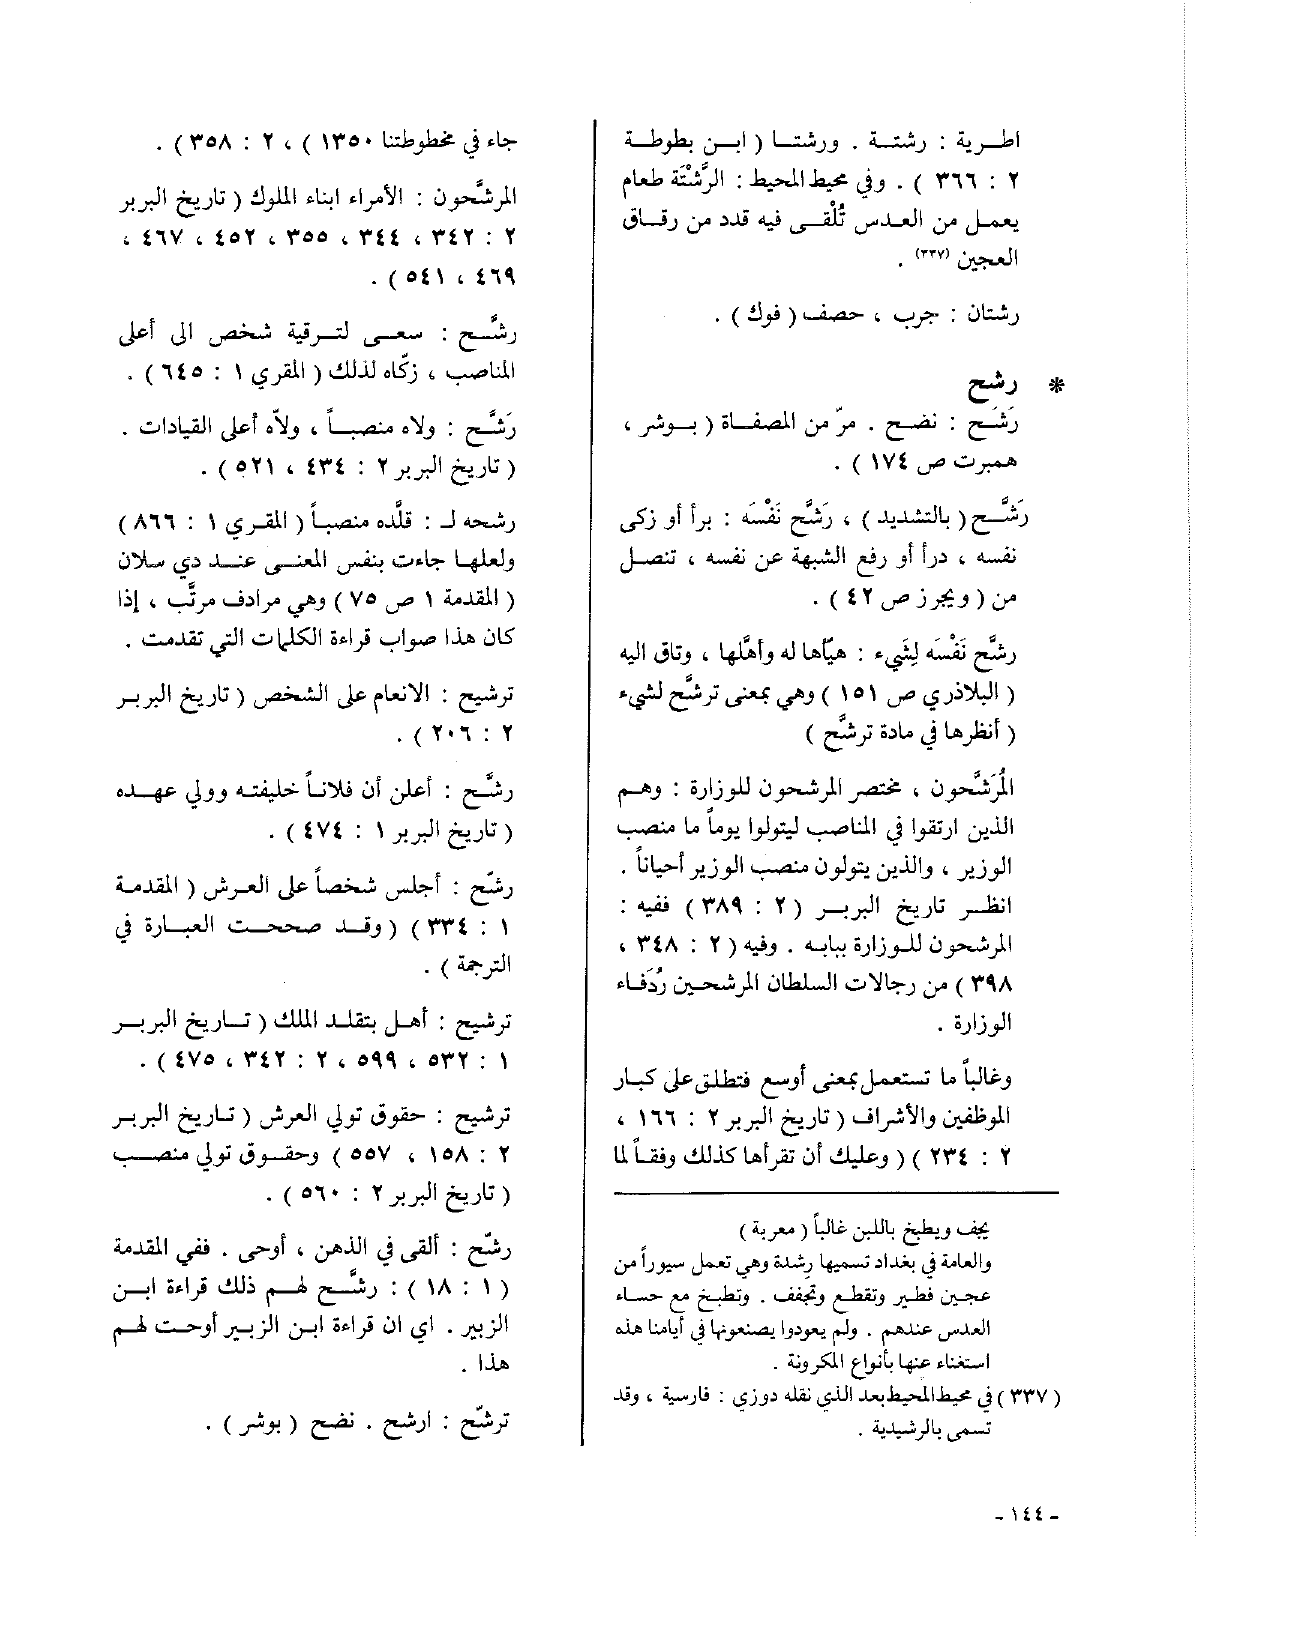 اطرية : رشتة . ورشتا ( ابن بطوطة
٢ : ٣٦٦ ) . وفي محيط المحيط : الرَّشْتَة طعام
يعمل من العدس تُلْقى فيه قدد من رقاق
العجين (٣٣٧) .
رشتان : جرب ، حصف ( فوك ) .
* رشح
رَشَح : نضح . مرّ من المصفاة ( بوشر ،
همبرت ص ١٧٤ ) .
رَشَّح ( بالتشديد ) ، رَشَّح نَفْسَه : برأ أو زكى
نفسه ، درأ أو رفع الشبهة عن نفسه ، تنصل
من ( ويجرز ص ٤٢ ) .
رشَّح نَفْسَه لِشَيء : هيّأها له وأهَّلها ، وتاق اليه
( البلاذري ص ١٥١ ) وهي بمعنى ترشَّح لشيء
( أنظرها في مادة ترشَّح )
المُرَشَّحون ، مختصر المرشحون للوزارة : وهم
الذين ارتقوا في المناصب ليتولوا يوماً ما منصب
الوزير ، والذين يتولون منصب الوزير أحياناً .
انظر تاريخ البربر ( ٢ : ٣٨٩ ) ففيه :
المرشحون للوزارة ببابه . وفيه ( ٢ : ٣٤٨ ،
٣٩٨ ) من رجالات السلطان المرشحين رُدَفاء
الوزارة .
وغالباً ما تستعمل بمعنى أوسع فتطلق على كبار
الموظفين والأشراف ( تاريخ البربر ٢ : ١٦٦ ،
٢ : ٢٣٤ ) ( وعليك أن تقرأها كذلك وفقاً لما
يجف ويطبخ باللبن غالباً ( معربة )
والعامة في بغداد تسميها رشدة وهي تعمل سيوراً من
عجين فطير وتقطع وتجفف . وتطبخ مع حساء
العدس عندهم . ولم يعودوا يصنعونها في أيامنا هذه
استغناء عنها بأنواع المكرونة .
( ٣٣٧ ) في محيط المحيط بعد الذي نقله دوزي : فارسية ، وقد
تسمى بالرشيدية .
جاء في مخطوطتنا ١٣٥٠ ) ، ٢ : ٣٥٨ ) .
المرشَّحون : الأمراء ابناء الملوك ( تاريخ البربر
٢ : ٣٤٢ ، ٣٤٤ ، ٣٥٥ ، ٤٥٢ ، ٤٦٧ ،
٤٦٩ ، ٥٤١ ) .
رشَّح : سعى لترقية شخص الى أعلى
المناصب ، زكّاه لذلك ( المقري ١ : ٦٤٥ ) .
رَشَّح : ولاه منصباً ، ولاّه أعلى القيادات .
( تاريخ البربر ٢ : ٤٣٤ ، ٥٢١ ) .
رشحه لـ : قلَّده منصباً ( المقري ١ : ٨٦٦ )
ولعلها جاءت بنفس المعنى عند دي سلان
( المقدمة ١ ص ٧٥ ) وهي مرادف مرتَّب ، إذا
كان هذا صواب قراءة الكلمات التي تقدمت .
ترشيح : الانعام على الشخص ( تاريخ البربر
٢ : ٢٠٦ ) .
رشَّح : أعلن أن فلاناً خليفته وولي عهده
( تاريخ البربر ١ : ٤٧٤ ) .
رشّح : أجلس شخصاً على العرش ( المقدمة
١ : ٣٣٤ ) ( وقد صححت العبارة في
الترجمة ) .
ترشيح : أهل بتقلد الملك ( تاريخ البربر
١ : ٥٣٢ ، ٥٩٩ ، ٢ : ٣٤٢ ، ٤٧٥ ) .
ترشيح : حقوق تولي العرش ( تاريخ البربر
٢ : ١٥٨ ، ٥٥٧ ) وحقوق تولي منصب
( تاريخ البربر ٢ : ٥٦٠ ) .
رشّح : ألقى في الذهن ، أوحى . ففي المقدمة
( ١ : ١٨ ) : رشَّح لهم ذلك قراءة ابن
الزبير . اي ان قراءة ابن الزبير أوحت لهم
هذا .
ترشّح : ارشح . نضح ( بوشر ) .
- ١٤٤ -